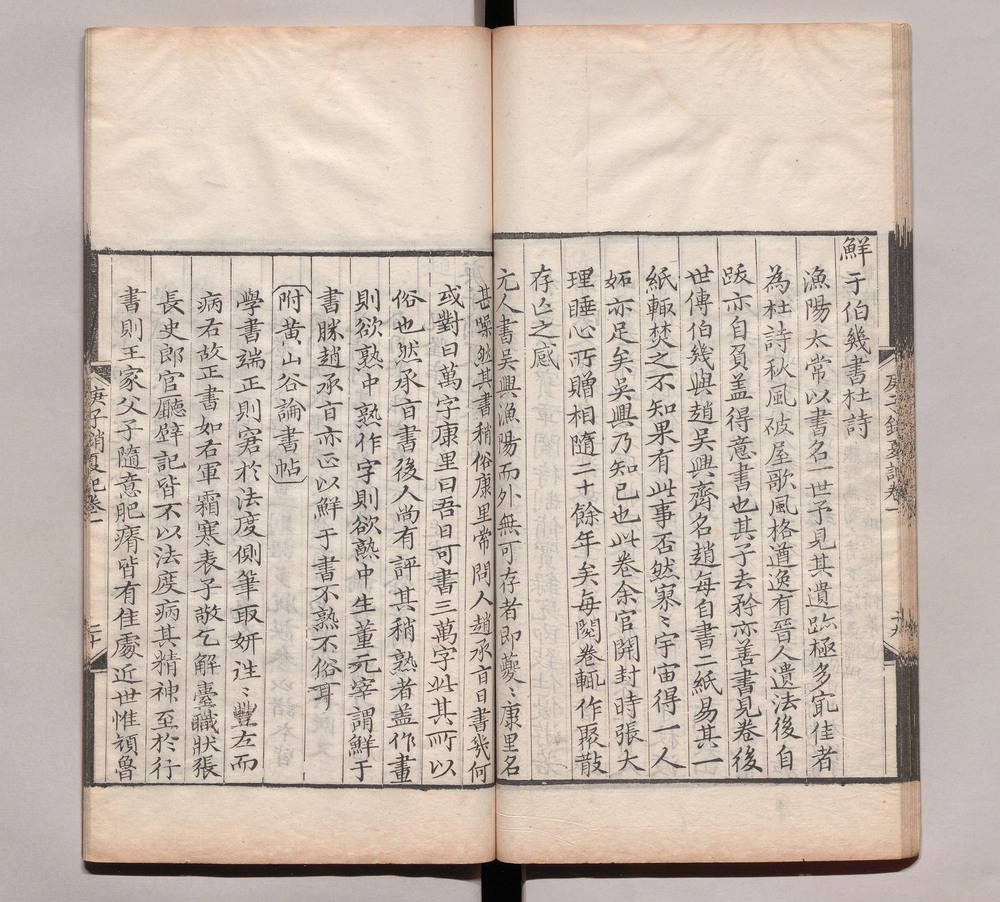 鮮于伯幾書杜詩
漁陽太常以書名一世予見其遺跡極多宂佳者
為杜詩秋風破屋歌風格遒逸有晉人遺法後自
跋亦自負盖得意書也其子去矜亦善書見卷後
世傳伯幾與趙吳興齊名趙每自書二紙易其一
紙輙焚之不知果有此事否然寥〻宇宙得一人
妬亦足矣吳興乃知已也此卷余官開封時張大
理睡心所贈相隨二十餘年矣每閱卷輙作聚散
存亡之感
元人書吳興漁陽而外無可存者即夔〻康里名
甚噪然其書稍俗康里常問人趙承旨日書幾何
或對曰萬字康里曰吾日可書三萬字此其所以
俗也然承旨書後人尚有評其稍熟者盖作畫
則欲熟中熟作字則欲熟中生董元宰謂鮮于
書勝趙承旨亦正以鮮于書不熟不俗耳
附黄山谷論書帖
學書端正則窘於法度側筆取妍往〻豐左而
病右故正書如右軍霜寒表子敬乞解臺職狀張
長史郎官廳壁記皆不以法度病其精神至於行
書則王家父子隨意肥瘠皆有佳處近世惟顔魯
庚子銷夏記卷一
二十